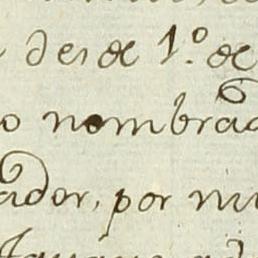 desde 1.º de
o nombrad
ador, por mi